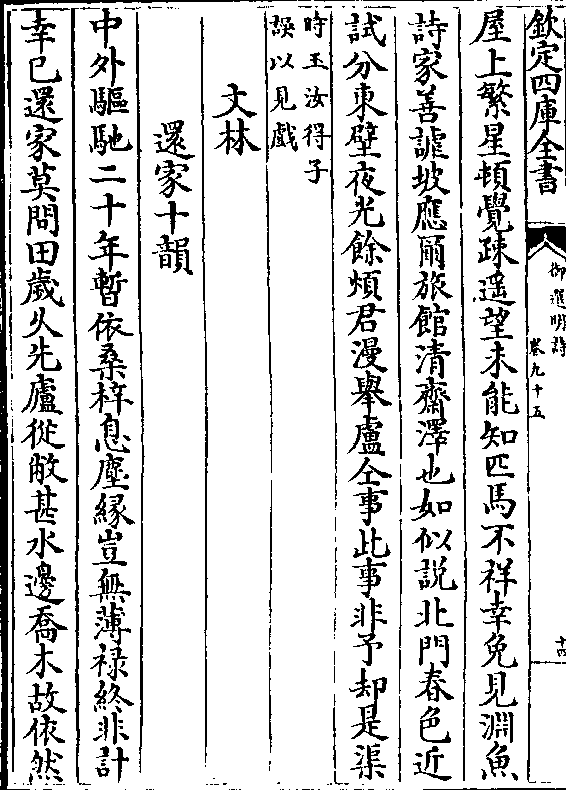 欽定四庫全書
御選明詩
卷九十五
十四
屋上繁星頓覺踈遥望未能知匹馬不祥幸免見淵魚
詩家善謔坡應爾旅館清齋澤也如似説北門春色近
試分東壁夜光餘煩君漫舉盧仝事此事非予却是渠
時玉汝得子
誤以見戲
文林
還家十韻
中外驅馳二十年暫依桑梓息塵緣豈無薄禄終非計
幸已還家莫問田歲久先廬從敝甚水邊喬木故依然